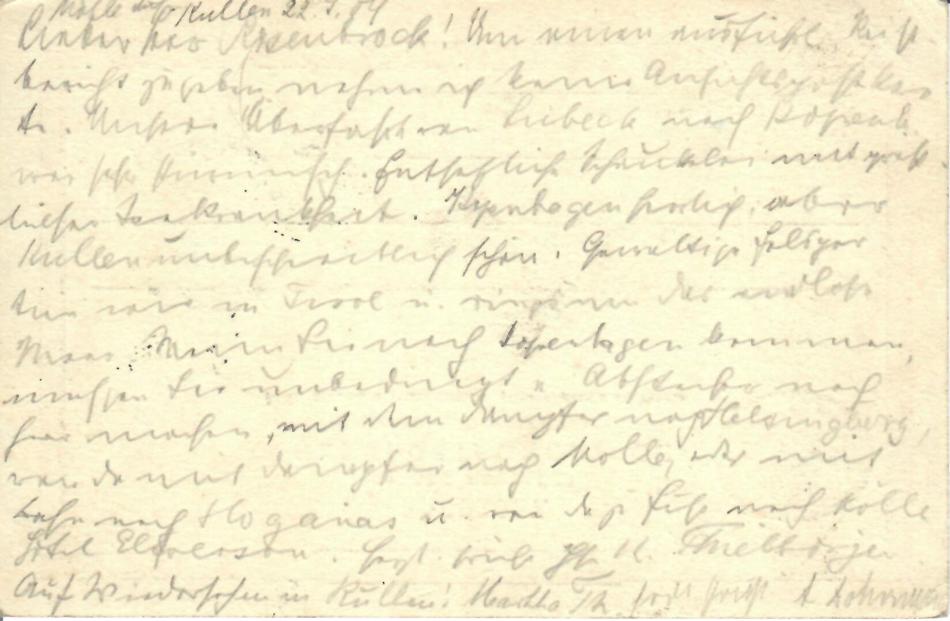 Mölle auf Kullen 22.7.04
Lieber Herr Rosenbrock! Um einen ausführl. Reise
bericht zu geben nehme ich keine Ansichtspostkar
te. Unsere Überfahrt von Lübeck nach Kopenh.
war sehr stürmisch. Entsetzliche Schaukelei mit
Seekrankheit. Kopenhagen herrlich, aber
Kullen unbeschreiblich schön. Gewaltige Felspar
tien wie in Tirol u. ringsum das endlose
Meer. Wenn Sie nach Kopenhagen kommen,
müssen Sie unbedingt e. Abstecher nach
hier machen, mit dem Dampfer nach Helsingborg,
von da mit Dampfer nach Mölle, oder mit
Bahn nach Höganäs u. von da p. nach Mölle
Hotel Elfverson. Herzl. Grüße Ihr H.
Auf Wiedersehen in Kullen! Martha Th